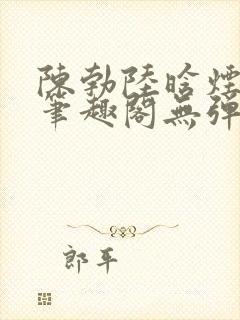 陳勃陸晗煙
筆趣閣無彈
郎平